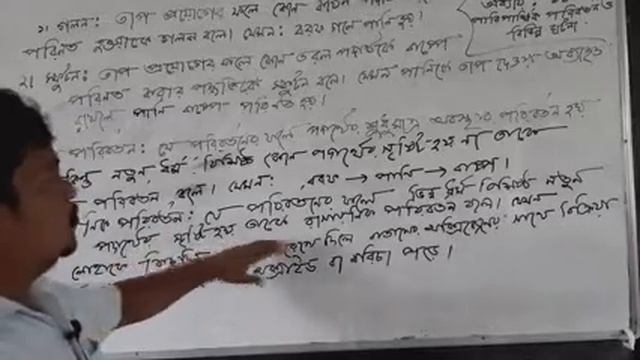 ১। গলন: তাপ প্রয়োগের ফলে কোন কঠিন
পরিণত হওয়াকে গলন বলে। যেমন: বরফ গলে পানি হয়।
পারিপার্শ্বিক পরিবর্তন ও
বিভিন্ন ঘটনা
২। স্ফুটন: তাপ প্রয়োগের ফলে কোন তরল পদার্থকে বাষ্পে
পরিণত করার পদ্ধতিকে স্ফুটন বলে। যেমন পানিকে তাপ দেওয়া অব্যাহত
রাখলে পানি বাষ্পে পরিণত হয়।
পরিবর্তন: যে পরিবর্তনের ফলে পদার্থের শুধুমাত্র অবস্থার পরিবর্তন হয়
কিন্তু নতুন ধর্ম বিশিষ্ট কোন পদার্থের সৃষ্টি হয় না তাকে
পরিবর্তন বলে। যেমন: বরফ → পানি → বাষ্প।
পরিবর্তন: যে পরিবর্তনের ফলে ভিন্ন ধর্ম বিশিষ্ট নতুন
পদার্থের সৃষ্টি হয় তাকে রাসায়নিক পরিবর্তন বলে। যেমন
লোহাকে রেখে দিলে বাতাসের অক্সিজেনের সাথে বিক্রিয়া
অক্সাইড বা মরিচা পড়ে।